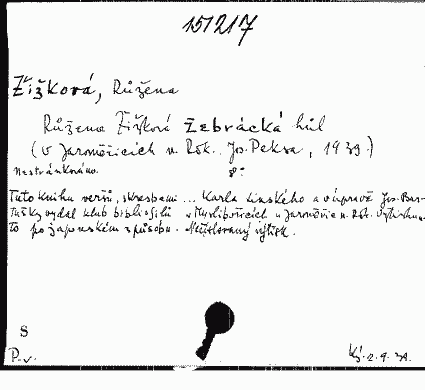 151217
Žižková, Růžena
Růžena Žižková Žebrácká hůl
(V Jaroměřicích n. Rok. Jos. Peksa, 1939.)
Nestránkováno. 8°
Tuto knihu veršů, s kresbami ... Karla Línského a v úpravě Jos. Bar-
tušky vydal klub bibliofilů v Myslibořicích u Jaroměřic n. Rok. Vytisknu-
to po japonském způsobu. Nečíslovaný výtisk.
S
P.v. 2.9.39.